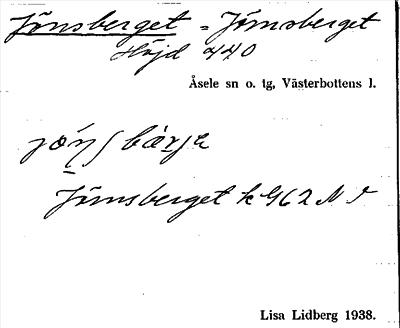 Jönsberget = Jönsberget
Höjd 440
Åsele sn o. tg, Västerbottens l.
Jönsberget k 962 N
Lisa Lidberg 1938.